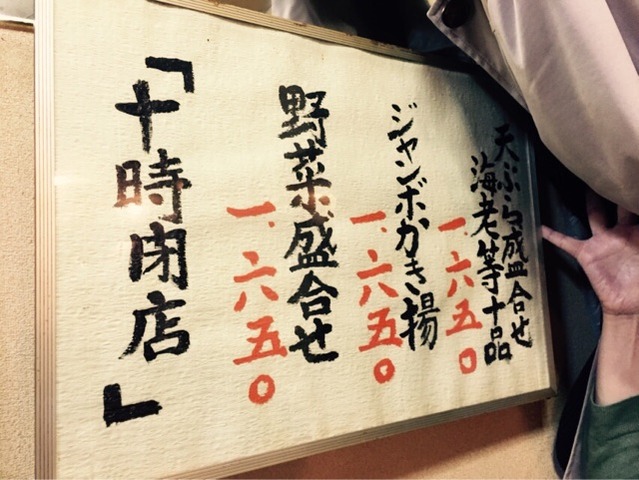 天ぷら盛合せ
海老等十品
一、六五〇
ジャンボかき揚
一、六五〇
野菜盛合せ
一、六五〇
「十時閉店」